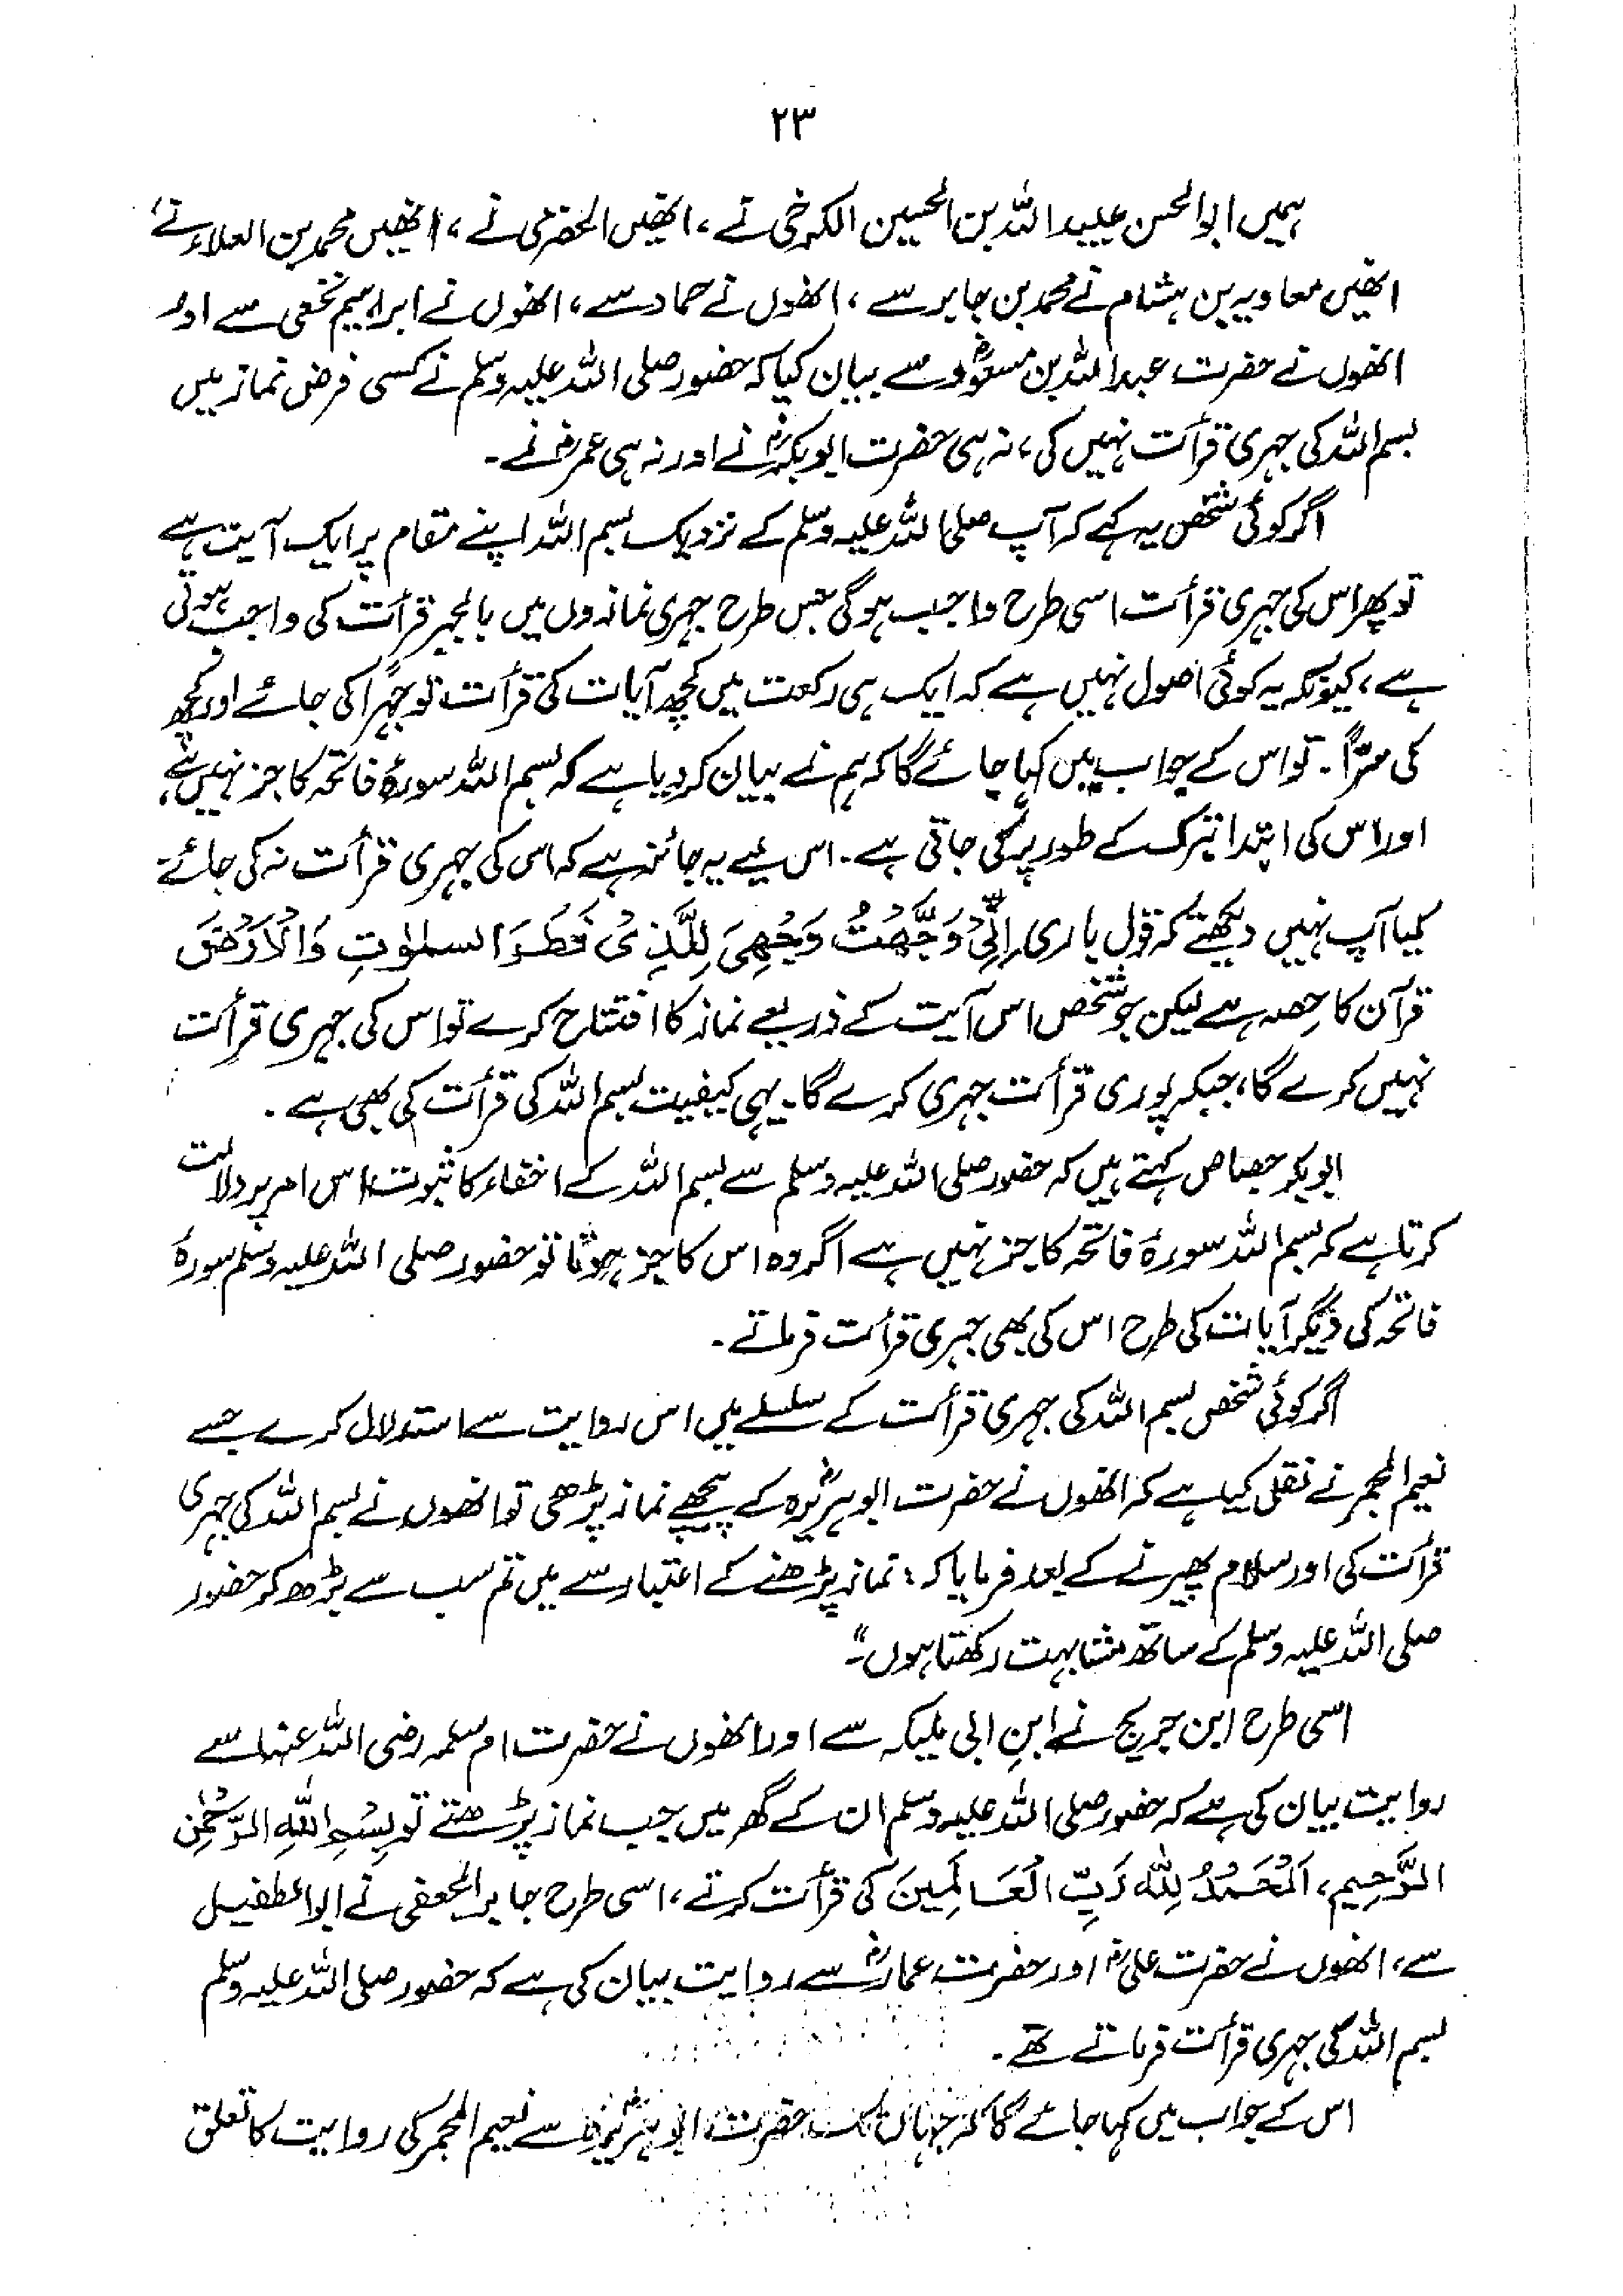 ۲۳
ہمیں ابوالحسن عبیداللہ بن الحسین الکرخی نے، انھیں الحضرمی نے، انھیں محمد بن العلاء نے،
انھیں معاویہ بن ہشام نے محمد بن جابر سے، انھوں نے حماد سے، انھوں نے ابراہیم نخعی سے اور
انھوں نے حضرت عبداللہ بن مسعودؓ سے بیان کیا کہ حضور صلی اللہ علیہ وسلم نے کسی فرض نماز میں
بسم اللہ کی جہری قرأت نہیں کی، نہ ہی حضرت ابوبکرؓ نے اور نہ ہی عمرؓ نے۔
اگر کوئی شخص یہ کہے کہ آپ صلی اللہ علیہ وسلم کے نزدیک بسم اللہ اپنے مقام پر ایک آیت ہے
تو پھر اس کی جہری قرأت اسی طرح واجب ہوگی جس طرح جہری نمازوں میں بالجہر قرأت کی واجب ہوتی
ہے، کیونکہ یہ کوئی اصول نہیں ہے کہ ایک ہی رکعت میں کچھ آیات کی قرأت تو جہراً کی جائے اور کچھ
کی سرّاً۔ تو اس کے جواب میں کہا جائے گا کہ ہم نے بیان کر دیا ہے کہ بسم اللہ سورۂ فاتحہ کا جز نہیں ہے،
اور اس کی ابتدا تبرک کے طور پر کی جاتی ہے۔ اس لیے یہ جائز ہے کہ اس کی جہری قرأت نہ کی جائے۔
کیا آپ نہیں دیکھتے کہ قول باری اِنِّیْ وَجَّھْتُ وَجْھِیَ لِلَّذِیْ فَطَرَ السمٰوٰتِ وَالْاَرْضَ
قرآن کا حِصہ ہے لیکن جو شخص اس آیت کے ذریعے نماز کا افتتاح کرے تو اس کی جہری قرأت
نہیں کرے گا، جبکہ پوری قرأت جہری کرے گا۔ یہی کیفیت بسم اللہ کی قرأت کی بھی ہے۔
ابوبکر جصاص کہتے ہیں کہ حضور صلی اللہ علیہ وسلم سے بسم اللہ کے اخفاء کا ثبوت اس امر پر دلالت
کرتا ہے کہ بسم اللہ سورۂ فاتحہ کا جز نہیں ہے اگر وہ اس کا جز ہوتا تو حضور صلی اللہ علیہ وسلم سورۂ
فاتحہ کی دیگر آیات کی طرح اس کی بھی جہری قرأت فرماتے۔
اگر کوئی شخص بسم اللہ کی جہری قرأت کے سلسلے میں اس روایت سے استدلال کرے جسے
نعیم المجمر نے نقل کیا ہے کہ انھوں نے حضرت ابوہریرہؓ کے پیچھے نماز پڑھی تو انھوں نے بسم اللہ کی جہری
قرأت کی اور سلام پھیرنے کے بعد فرمایا کہ: نماز پڑھنے کے اعتبار سے میں تم سب سے بڑھ کر حضور
صلی اللہ علیہ وسلم کے ساتھ مشابہت رکھتا ہوں۔"
اسی طرح ابن جریج نے ابنِ ابی ملیکہ سے اور انھوں نے حضرت ام سلمہ رضی اللہ عنہا سے
روایت بیان کی ہے کہ حضور صلی اللہ علیہ وسلم ان کے گھر میں جب نماز پڑھتے تو بِسْمِ اللہِ الرَّحْمٰنِ
الرَّحِیم، اَلْحَمْدُ لِلّٰہِ رَبِّ الْعَالَمِینَ کی قرأت کرتے، اسی طرح جابر الجعفی نے ابوالطفیل
سے، انھوں نے حضرت علیؓ اور حضرت عمارؓ سے روایت بیان کی ہے کہ حضور صلی اللہ علیہ وسلم
بسم اللہ کی جہری قرأت فرماتے تھے۔
اس کے جواب میں کہا جائے گا کہ جہاں تک حضرت ابوہریرہؓ سے نعیم المجمر کی روایت کا تعلق